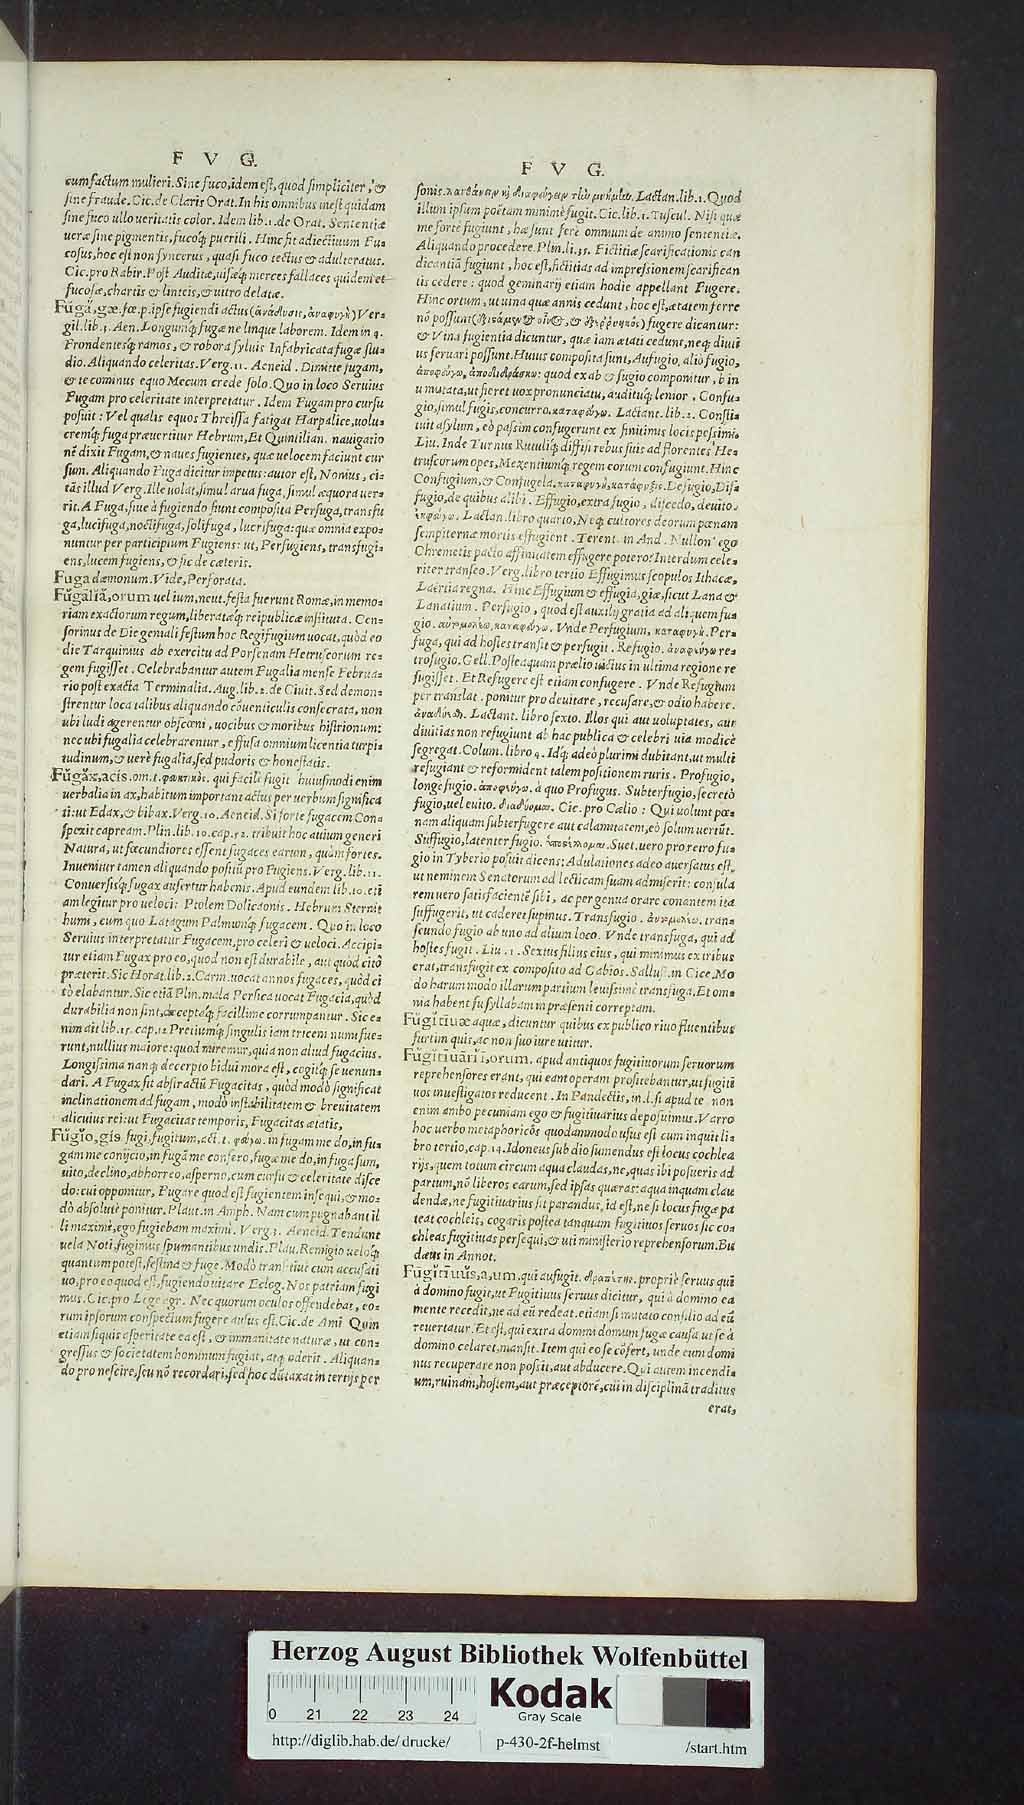 F V G.
cum factum mulieri. Sine fuco, idem est, quod simpliciter, &
sine fraude. Cic. de Claris Orat. In his omnibus inest quidam
sine fuco ullo ueritatis color. Idem lib. 1. de Orat. Sententiæ
ueræ sine pigmentis, fucoq́; puerili. Hinc fit adiectiuum Fu⸗
cosus, hoc est non syncerus, quasi fuco tectus & adulteratus.
Cic. pro Rabir. Post Auditæ, uisæq́; merces fallaces quidem et
fucosæ, chartis & linteis, & uitro delatæ.
Fŭgă, gæ. fœ. p. ipse fugiendi actus (ἀνάδυσις, ἀναφυγὴ) Ver⸗
gil. lib. 3. Aen. Longumq́; fugæ ne linque laborem. Idem in 4.
Frondentesq́; ramos, & robora syluis Infabricata fugæ stu⸗
dio. Aliquando celeritas. Verg. 11. Aeneid. Dimitte fugam,
& te cominus equo Mecum crede solo. Quo in loco Seruius
Fugam pro celeritate interpretatur. Idem Fugam pro cursu
posuit: Vel qualis equos Threissa fatigat Harpalice, uolu⸗
cremq́; fuga præuertitur Hebrum, Et Quintilian. nauigatio
nē dixit Fugam, & naues fugientes, quæ uelocem faciunt cur
sum. Aliquando Fuga dicitur impetus: autor est, Nonius, ci⸗
tās illud Verg. Ille uolat, simul arua fuga, simul æquora uer⸗
rit. A Fuga, siue à fugiendo fiunt composita Perfuga, transfu
ga, lucifuga, noctifuga, solifuga, lucrifuga: quæ omnia expo⸗
nuntur per participium Fugiens: ut, Perfugiens, transfugi⸗
ens, lucem fugiens, & sic de cæteris.
Fuga dæmonum. Vide, Perforata.
Fŭgālĭă, orum uel ium, neut. festa fuerunt Romæ, in memo⸗
riam exactorum regum, liberatæq́; reipublicæ instituta. Cen⸗
sorinus de Die geniali festum hoc Regifugium uocat, quòd eo
die Tarquinius ab exercitu ad Porsenam Hetruscorum re⸗
gem fugisset. Celebrabantur autem Fugalia mense Februa⸗
rio post exacta Terminalia. Aug. lib. 2. de Ciuit. Sed demon⸗
strentur loca talibus aliquando cōuenticulis consecrata, non
ubi ludi agerentur obscœni, uocibus & moribus histrionum:
nec ubi fugalia celebrarentur, effusa omnium licentia turpi⸗
tudinum, & uerè fugalia, sed pudoris & honestatis.
Fŭgāx, acis. om. t. φευκτικὸς. qui facilè fugit huiusmodi enim
uerbalia in ax, habitum important actus per uerbum significa
ti: ut Edax, & bibax. Verg. 10. Aeneid. Si forte fugacem Con⸗
spexit capream. Plin. lib. 10. cap. 52. tribuit hoc auium generi
Natura, ut fœcundiores essent fugaces earum, quàm fortes.
Inuenitur tamen aliquando positū pro Fugiens. Verg. lib. 11.
Conuersisq́; fugax aufertur habenis. Apud eundem lib. 10. etiā
am legitur pro ueloci: Ptolem Dolicaonis. Hebrum Sternit
humi, cum quo Latagum Palmumq́; fugacem. Quo in loco
Seruius interpretatur Fugacem, pro celeri & ueloci. Accipi⸗
tur etiam Fugax pro eo, quod non est durabile, aut quòd citò
præterit. Sic Horat. lib. 2. Carm. uocat annos fugaces, quòd ci
tò elabantur. Sic etiā Plin. mala Persica uocat Fugacia, quòd
durabilia non sint, deceptaq́; facillime corrumpantur. Sic e⸗
nim ait lib. 15. cap. 12 Pretiumq́; singulis iam triceni numi fue⸗
runt, nullius maiore: quod miremur, quia non aliud fugacius.
Longissima nanq́; decerpto bidui mora est, cogitq́; se uenun⸗
dari. A Fugax fit abstractū Fugacitas, quòd modò significat
inclinationem ad fugam, modò instabilitatem & breuitatem
alicuius rei: ut Fugacitas temporis, Fugacitas ætatis,
Fŭgĭo, gis. fugi, fugitum, act. t. φεύγω. in fugam me do, in fu⸗
gam me conijcio, in fugā me confero, fugæ me do, in fuga sum,
uito, declino, abhorreo, asperno, cum cursu & celeritate disce
do: cui opponitur, Fugare quod est fugientem insequi, & mo⸗
dò absolutè ponitur. Plaut. in Amph. Nam cum pugnabant il
li maximè, ego fugiebam maximè. Verg 3. Aeneid. Tendunt
uela Noti, fugimus spumantibus undis. Plau. Remigio ueloq́;
quantum potest, festina & fuge. Modò transitiuè cum accusati
uo, pro eo quod est, fugiendo uitare Eclog. Nos patriam fugi
mus. Cic. pro Lege agr. Nec quorum oculos offendebat, eo⸗
rum ipsorum conspectum fugere ausus est. Cic. de Ami Quin
etiam siquis asperitate ea est, & immanitate naturæ, ut con⸗
gressus & societatem hominum fugiat, atq́; oderit. Aliquan⸗
do pro nescire, seu nō recordari, sed hoc dūtaxat in tertijs per
F V G.
sonis. λανθάνειν Lactan. lib. 1. Quod
illum ipsum poëtam minimè fugit. Cic. lib. 1. Tuscul. Nisi quæ
me fortè fugiunt, hæ sunt ferè omnium de animo sententiæ.
Aliquando procedere. Plin. li. 35. Fictitiæ scarificationis can
dicantiā fugiunt, hoc est, fictitias ad impressionem scarifican
tis cedere: quod geminarij etiam hodie appellant Fugere.
Hinc ortum, ut uina quæ annis cedunt, hoc est, ætatem ferre
nō possunt fugere dicantur:
& Vina fugientia dicuntur, quæ iam ætati cedunt, neq́; diuti
us seruari possunt. Huius composita sunt, Aufugio, aliò fugio,
ἀποφεύγω, ἀποδιδράσκω: quod ex ab & fugio componitur, b in
u mutata, ut fieret uox pronunciatu, audituq́; lenior. Confu⸗
gio, simul fugis, concurro, καταφεύγω. Lactant. lib. 2. Consti⸗
tuit asylum, eò passim confugerunt ex finitimis locis pessimi.
Liu. Inde Turnus Rutuliq́; diffisi rebus suis ad florentes He⸗
truscorum opes, Mezentiumq́; regem eorum confugiunt. Hinc
Confugium, & Confugela. καταφυγὴ, κατάφυξις. Defugio, Dif⸗
fugio, de quibus alibi. Effugio, extra fugio, discedo, deuito.
ἐκφεύγω. Lactan. libro quarto, Neq́; cultores deorum pœnam
sempiternæ mortis effugient. Terent. in And. Nullon' ego
Chremetis pacto affinitatem effugere potero? Interdum cele⸗
riter transeo. Verg. libro tertio Effugimus scopulos Ithacæ,
Laërtia regna. Hinc Effugium & effugia, giæ, sicut Lana &
Lanatium. Perfugio, quod est auxilij gratia ad aliquem fu⸗
gio. αὐτομολέω, καταφεύγω. Vnde Perfugium, καταφυγὴ. Per⸗
fuga, qui ad hostes transit & perfugit. Refugio. ἀναφεύγω re⸗
trofugio. Gell. Posteaquam prælio uictus in ultima regione re
fugisset. Et Refugere est etiam confugere. Vnde Refugium
per translat. ponitur pro deuitare, recusare, & odio habere.
Lactant. libro sexto. Illos qui aut uoluptates, aut
diuitias non refugiunt ab hac publica & celebri uia modicè
segregat. Colum. libro 4. Idq́; adeò plurimi dubitant, ut multi
refugiant & reformident talem positionem ruris. Profugio,
longè fugio. ἀποφεύγω. à quo Profugus. Subterfugio, secretò
fugio, uel euito. διαδύομαι. Cic. pro Cælio: Qui uolunt pœ⸗
nam aliquam subterfugere aut calamitatem, eò solum uertūt.
Suffugio, latenter fugio. Suet. uero pro retro fu⸗
gio in Tyberio posuit dicens: Adulationes adeo auersatus est,
ut neminem Senatorum ad lecticam suam admiserit: consula
rem uero satisfacientē sibi, ac per genua orare conantem ita
suffugerit, ut caderet supinus. Transfugio. αὐτομολέω. tran⸗
seundo fugio ab uno ad alium loco. Vnde transfuga, qui ad
hostes fugit. Liu. 1. Sextus filius eius, qui minimus ex tribus
erat, transfugit ex composito ad Gabios. Sallust. in Cice. Mo
do harum modo illarum partium leuissimè transfuga. Et om⸗
nia habent fu syllabam in præsenti correptam.
Fŭgĭtīuæ aquæ, dicuntur quibus ex publico riuo fluentibus
furtim quis, ac non suo iure utitur.
Fŭgĭtīuārĭī, iorum. apud antiquos fugitiuorum seruorum
reprehensores erant, qui eant operam profitebantur, ut fugiti
uos inuestigatos reducent. In Pandectis, in. l. si apud te non
enim ambo pecuniam ego & fugitiuarius deposuimus. Varro
hoc uerbo metaphoricōs quodammodo usus est cum inquit li⸗
bro tertio, cap. 14. Idoneus sub dio sumendus est locus cochlea
rijs, quem totum circum aqua claudas, ne, quas ibi posueris ad
partum, nō liberos earum, sed ipsas quæras: aqua inquam clau
dendæ, ne fugitiuarius sit parandus, id est, ne si locus fugæ pa
teat cochleis, cogaris postea tanquam fugitiuos seruos sic co⸗
chleas fugitiuas persequi, & uti ministerio reprehensorum. Bu
dæus in Annot.
Fŭgĭtīuŭs, a, um. qui aufugit. δραπέτης. propriè seruus qui
à domino fugit, ut Fugitiuus seruus dicitur, qui à domino ea
mente recedit, ne ad eū redeat. etiam si mutato consilio ad eū
reuertatur. Et est, qui extra domini domum fugæ causa ut se à
domino celaret, mansit. Item qui eo se cōfert, unde eum domi
nus recuperare non possit, aut abducere. Qui autem incendi⸗
um, ruinam, hostem, aut præceptorē, cui in disciplinā traditus
erat,
Herzog August Bibliothek Wolfenbüttel
0 21 22 23 24
Kodak
Gray Scale
http://diglib.hab.de/drucke/ p-430-2f-helmst /start.htm